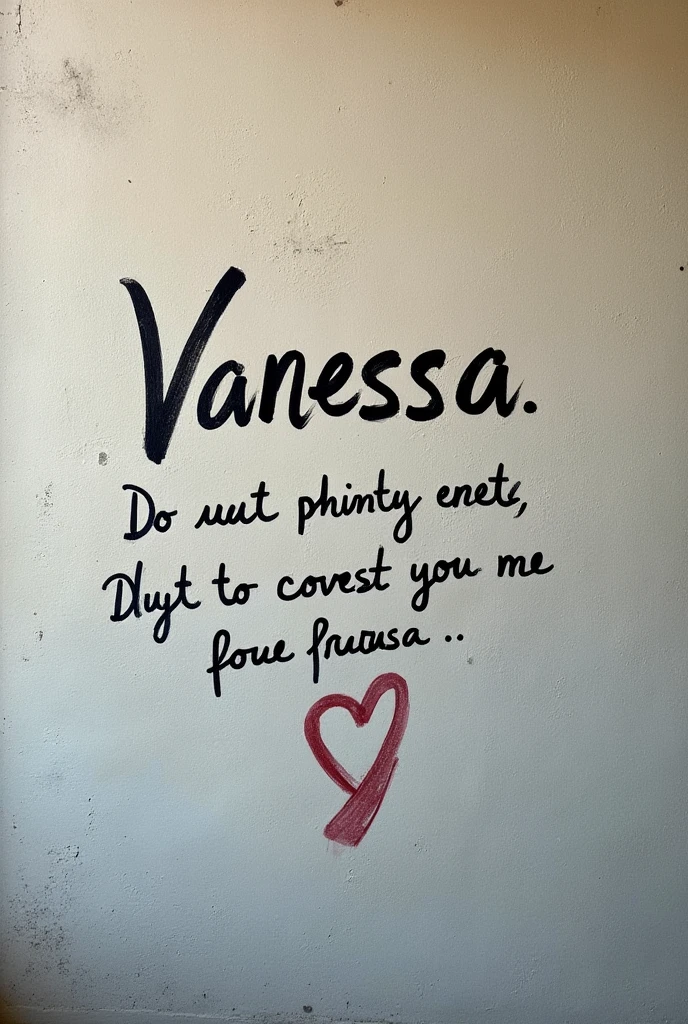 Vanessa.
Do uut phinty enets,
Dluyt to covest you me
foue fruusa ..